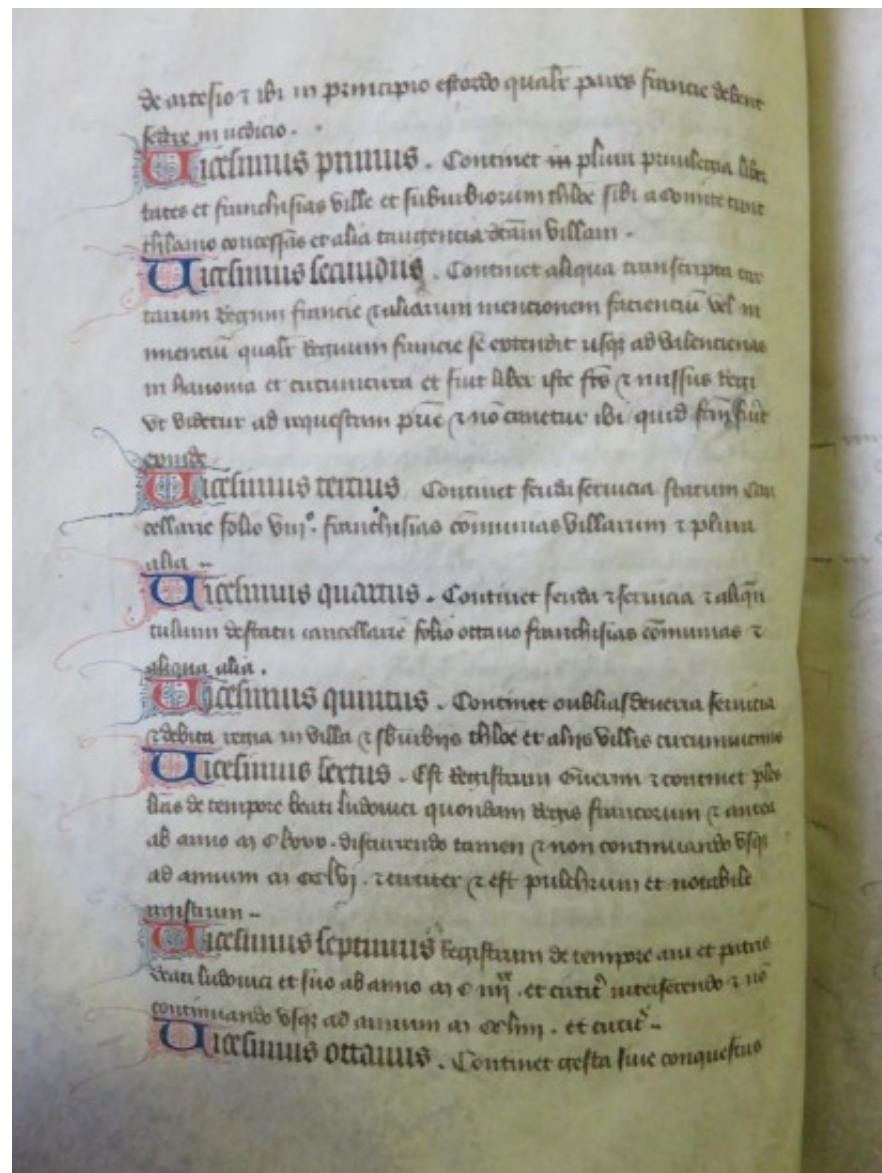 de artesio ⁊ ibi in principio est ordo qualr̄ pares francie debent
sedere in iudicio .
Uicesimus primus . Continet plura priuilegia liber
tates et franchisias ville et suburbiorum thłoe sibi a comite
thłosano concessas et alia tangencia dc̄am villam .
Uicesimus secundus . Continet aliqua transcripta car
tarum Regum francie ⁊ aliarum mencionem facienciū vel in
nuenciū qualr̄ Regnum francie se extendit usqꝫ ad valencienas
in hanonia et circumcirca et fuit liber iste fcs̄ ⁊ missus Regi
vt videtur ad requestam ⁊ nō cauetur ibi quid
exinde
Uicesimus tercius Continet feudi seruicia statum can
cellarie folio viijº . franchisias cōmunias villarum ⁊ plura
alia ..
Uicesimus quartus . Continet feuda ⁊ seruicia ⁊ aliqū
tulum de statu cancellarie folio ottauo franchisias cōmunias ⁊
aliqua alia .
Uicesimus quintus . Continet oublias deueria seruicia
⁊ debita regia in villa ⁊ sburbijs thłoe et alijs villis circumuicinis
Uicesimus sextus . Est Registrum ⁊ continet
lrās de tempore beati ludouici quondam Regis francorum ⁊ antea
ab anno discurrendo tamen ⁊ non continuando vsqꝫ
ad annum m cclvj . ⁊ circiter ⁊ est pulchrum et notabile
registrum ..
Uicesimus septimus Registrum de tempore aui et patris
beati ludouici et suo ab anno m c et circitˀ interserendo ⁊ nō
continuando vsqꝫ ad annum m ccliiij . et circitˀ ..
Uicesimus ottauus . Continet gesta siue conquestus